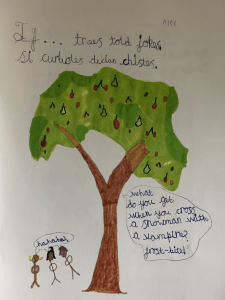 If... trees told jokes.
si
chistes.
hahahah
what
do you get
when you cross
a snowman with
a vampire?
frost-bite!